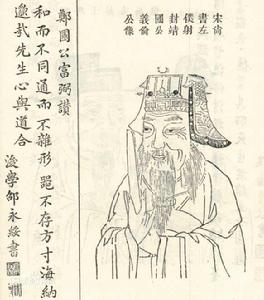 宋尚
書左
僕射
封靖
國公
義倫
公像
鄭國公富弼讚
和而不同通而不雜形器不存方寸海納
邈哉先生心與道合
後學永綏書